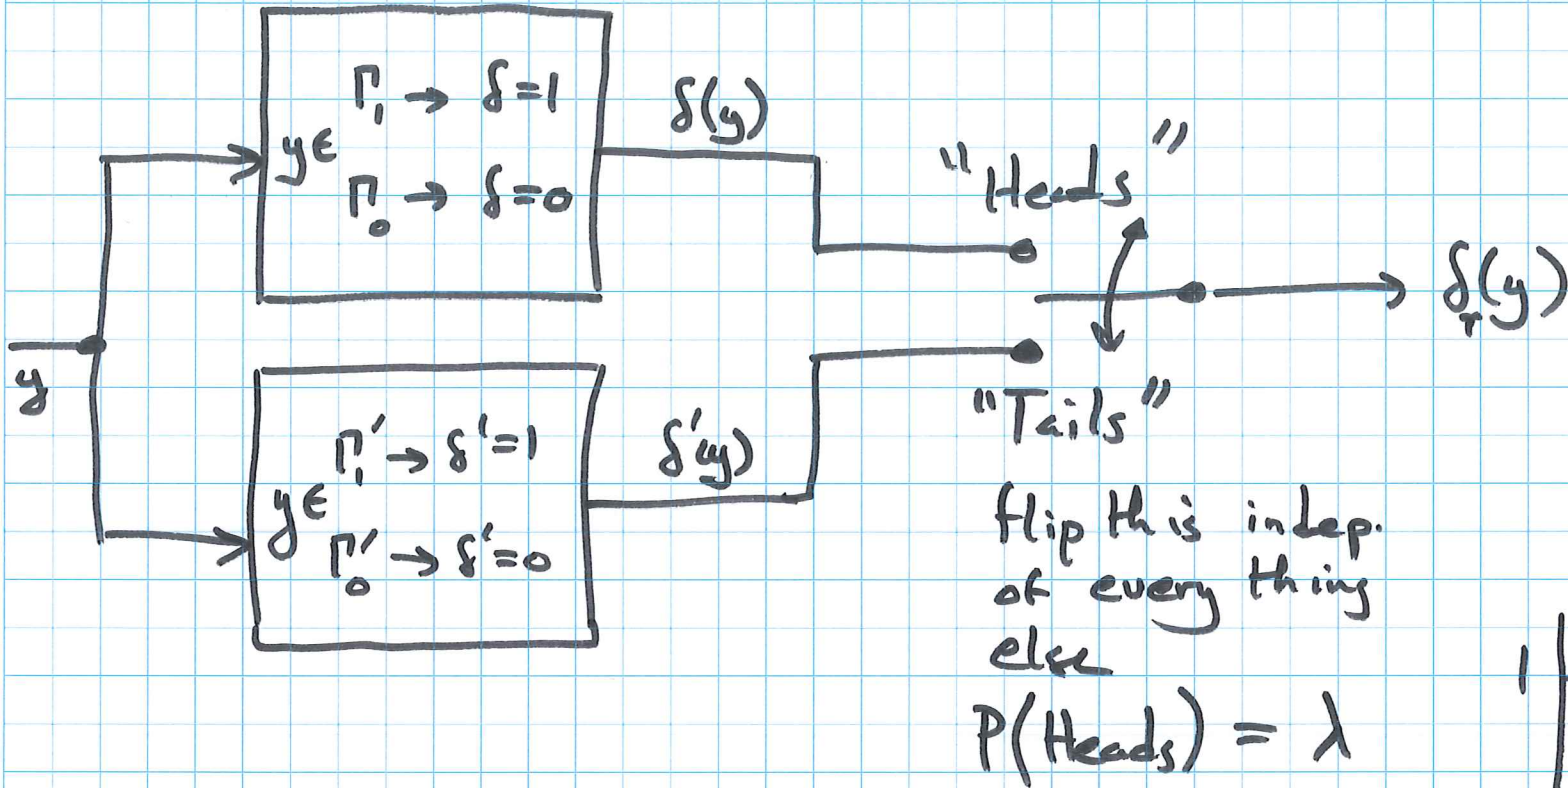 y
y ∈
Γ₁ → δ=1
Γ₀ → δ=0
δ(y)
y ∈
Γ₁' → δ'=1
Γ₀' → δ'=0
δ'(y)
"Heads"
"Tails"
δᵣ(y)
flip this indep.
of every thing
else
P(Heads) = λ
1